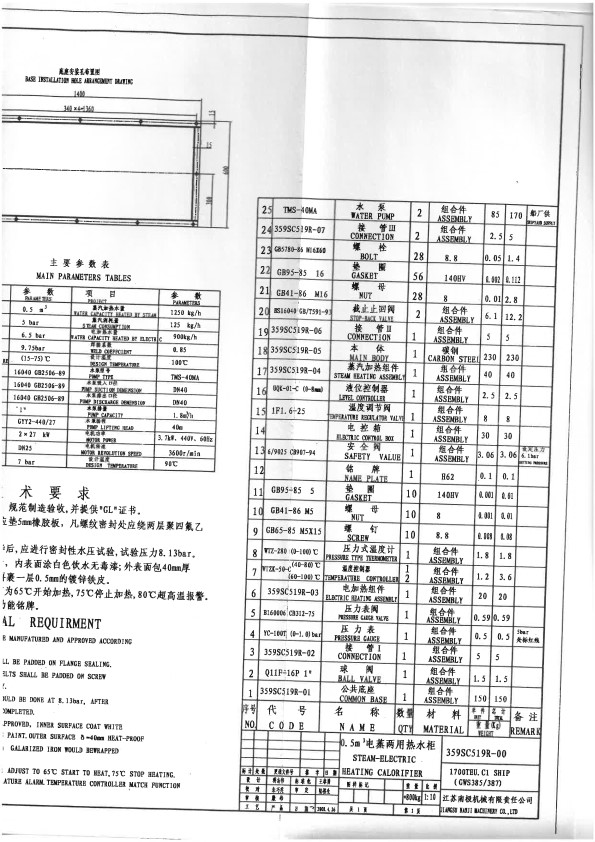 底座安装孔布置图
BASE INSTALLATION HOLE ARRANGEMENT DRAWING
1400
340 x4=1360
主要参数表
MAIN PARAMETERS TABLES
参数 项目 参数
PARAMETERS PROJECT PARAMETERS
0.5 m³ 蒸汽加热水量 WATER CAPACITY HEATED BY STEAM 1250 kg/h
5 bar 蒸汽消耗量 STEAM CONSUMPTION 125 kg/h
6.5 bar WATER CAPACITY HEATED BY ELECTRIC 900kg/h
9.75bar 焊接系数 WELD COEFFICIENT 0.85
(15-75)℃ 设计温度 DESIGN TEMPERATURE 100℃
16040 GB2506-89 水泵型号 PUMP TYPE TMS-40MA
16040 GB2506-89 PUMP SUCTION DIMENSION DN40
16040 GB2506-89 PUMP DISCHARGE DIMENSION DN40
"1" 水泵排量 PUMP CAPACITY 1.8m³/h
GYY2-440/27 水泵扬程 PUMP LIFTING HEAD 40m
2×27 kW 电机功率 MOTOR POWER 3.7kW, 440V, 60Hz
DN25 电机转速 MOTOR REVOLUTION SPEED 3600r/min
7 bar 设计温度 DESIGN TEMPERATURE 90℃
术要求
规范制造验收,并提供"GL"证书。
垫5mm橡胶板, 凡螺纹密封处应绕两层聚四氟乙
后,应进行密封性水压试验,试验压力8.13bar。
, 内表面涂白色饮水无毒漆; 外表面包40mm厚
裹一层0.5mm的镀锌铁皮。
为65℃开始加热,75℃停止加热,80℃超高温报警。
功能铭牌。
AL REQUIRMENT
E MANUFATURED AND APPROVED ACCORDING
LL BE PADDED ON FLANGE SEALING.
ELTS SHALL BE PADDED ON SCREW
OULD BE DONE AT 8.13bar, AFTER
COMPLETED.
PPROVED, INNER SURFACE COAT WHITE
PAINT, OUTER SURFACE δ=40mm HEAT-PROOF
GALARIZED IRON WOULD BEWRAPPED
ADJUST TO 65℃ START TO HEAT, 75℃ STOP HEATING.
ATURE ALARM. TEMPERATURE CONTROLLER MATCH FUNCTION
25 TMS-40MA 水泵 WATER PUMP 2 组合件 ASSEMBLY 85 170 船厂供 SHIPYARD SUPPLY
24 359SC519R-07 接管Ⅲ CONNECTION 2 组合件 ASSEMBLY 2.5 5
23 GB5780-86 M16X60 螺栓 BOLT 28 8.8 0.05 1.4
22 GB95-85 16 垫圈 GASKET 56 140HV 0.002 0.112
21 GB41-86 M16 螺母 NUT 28 8 0.01 2.8
20 BS16040 GB/T591-93 截止止回阀 STOP-BACK VALVE 2 组合件 ASSEMBLY 6.1 12.2
19 359SC519R-06 接管Ⅱ CONNECTION 1 组合件 ASSEMBLY 5 5
18 359SC519R-05 本体 MAIN BODY 1 碳钢 CARBON STEEL 230 230
17 359SC519R-04 蒸汽加热组件 STEAM HEATING ASSEMBLY 1 组合件 ASSEMBLY 40 40
16 UQK-01-C (0-8mm) 液位控制器 LEVEL CONTROLLER 1 组合件 ASSEMBLY 2.5 2.5
15 1F1.6-25 温度调节阀 TEMPERATURE REGULATOR VALVE 1 组合件 ASSEMBLY 8 8
14 电控箱 ELECTRIC CONTROL BOX 1 组合件 ASSEMBLY 30 30
13 6/9025 CB907-94 安全阀 SAFETY VALUE 1 组合件 ASSEMBLY 3.06 3.06 设定压力 6.1bar SETTING PRESSURE
12 铭牌 NAME PLATE 1 H62 0.1 0.1
11 GB95-85 5 垫圈 GASKET 10 140HV 0.001 0.01
10 GB41-86 M5 螺母 NUT 10 8 0.001 0.01
9 GB65-85 M5X15 螺钉 SCREW 10 8.8 0.008 0.08
8 WTZ-280 (0-100)℃ 压力式温度计 PRESSURE TYPE THERMOMETER 1 组合件 ASSEMBLY 1.8 1.8
7 WTZK-50-C (40-80)℃ (60-100)℃ 温度控制器 TEMPERATURE CONTROLLER 1 2 组合件 ASSEMBLY 1.2 3.6
6 359SC519R-03 电加热组件 ELECTRIC HEATING ASSEMBLY 1 组合件 ASSEMBLY 20 20
5 B160006 CB312-75 压力表阀 PRESSURE GAUGE VALVE 1 组合件 ASSEMBLY 0.59 0.59
4 YC-100T (0-1.0)bar 压力表 PRESSURE GAUGE 1 组合件 ASSEMBLY 0.5 0.5 5bar 处标红线
3 359SC519R-02 接管Ⅰ CONNECTION 1 组合件 ASSEMBLY 5 5
2 Q11F-16P 1" 球阀 BALL VALVE 1 组合件 ASSEMBLY 1.5 1.5
1 359SC519R-01 公共底座 COMMON BASE 1 组合件 ASSEMBLY 150 150
序号 代号 名称 数量 材料 单件 总计 备注
NO. CODE NAME QTY MATERIAL 重量(Kg) WEIGHT REMARK
0.5m³电蒸两用热水柜
STEAM-ELECTRIC
HEATING CALORIFIER
359SC519R-00
1700TEU.C1 SHIP
(GWS385/387)
≈800kg 1:10
江苏南极机械有限责任公司
JIANGSU NANJI MACHINERY CO.,LTD